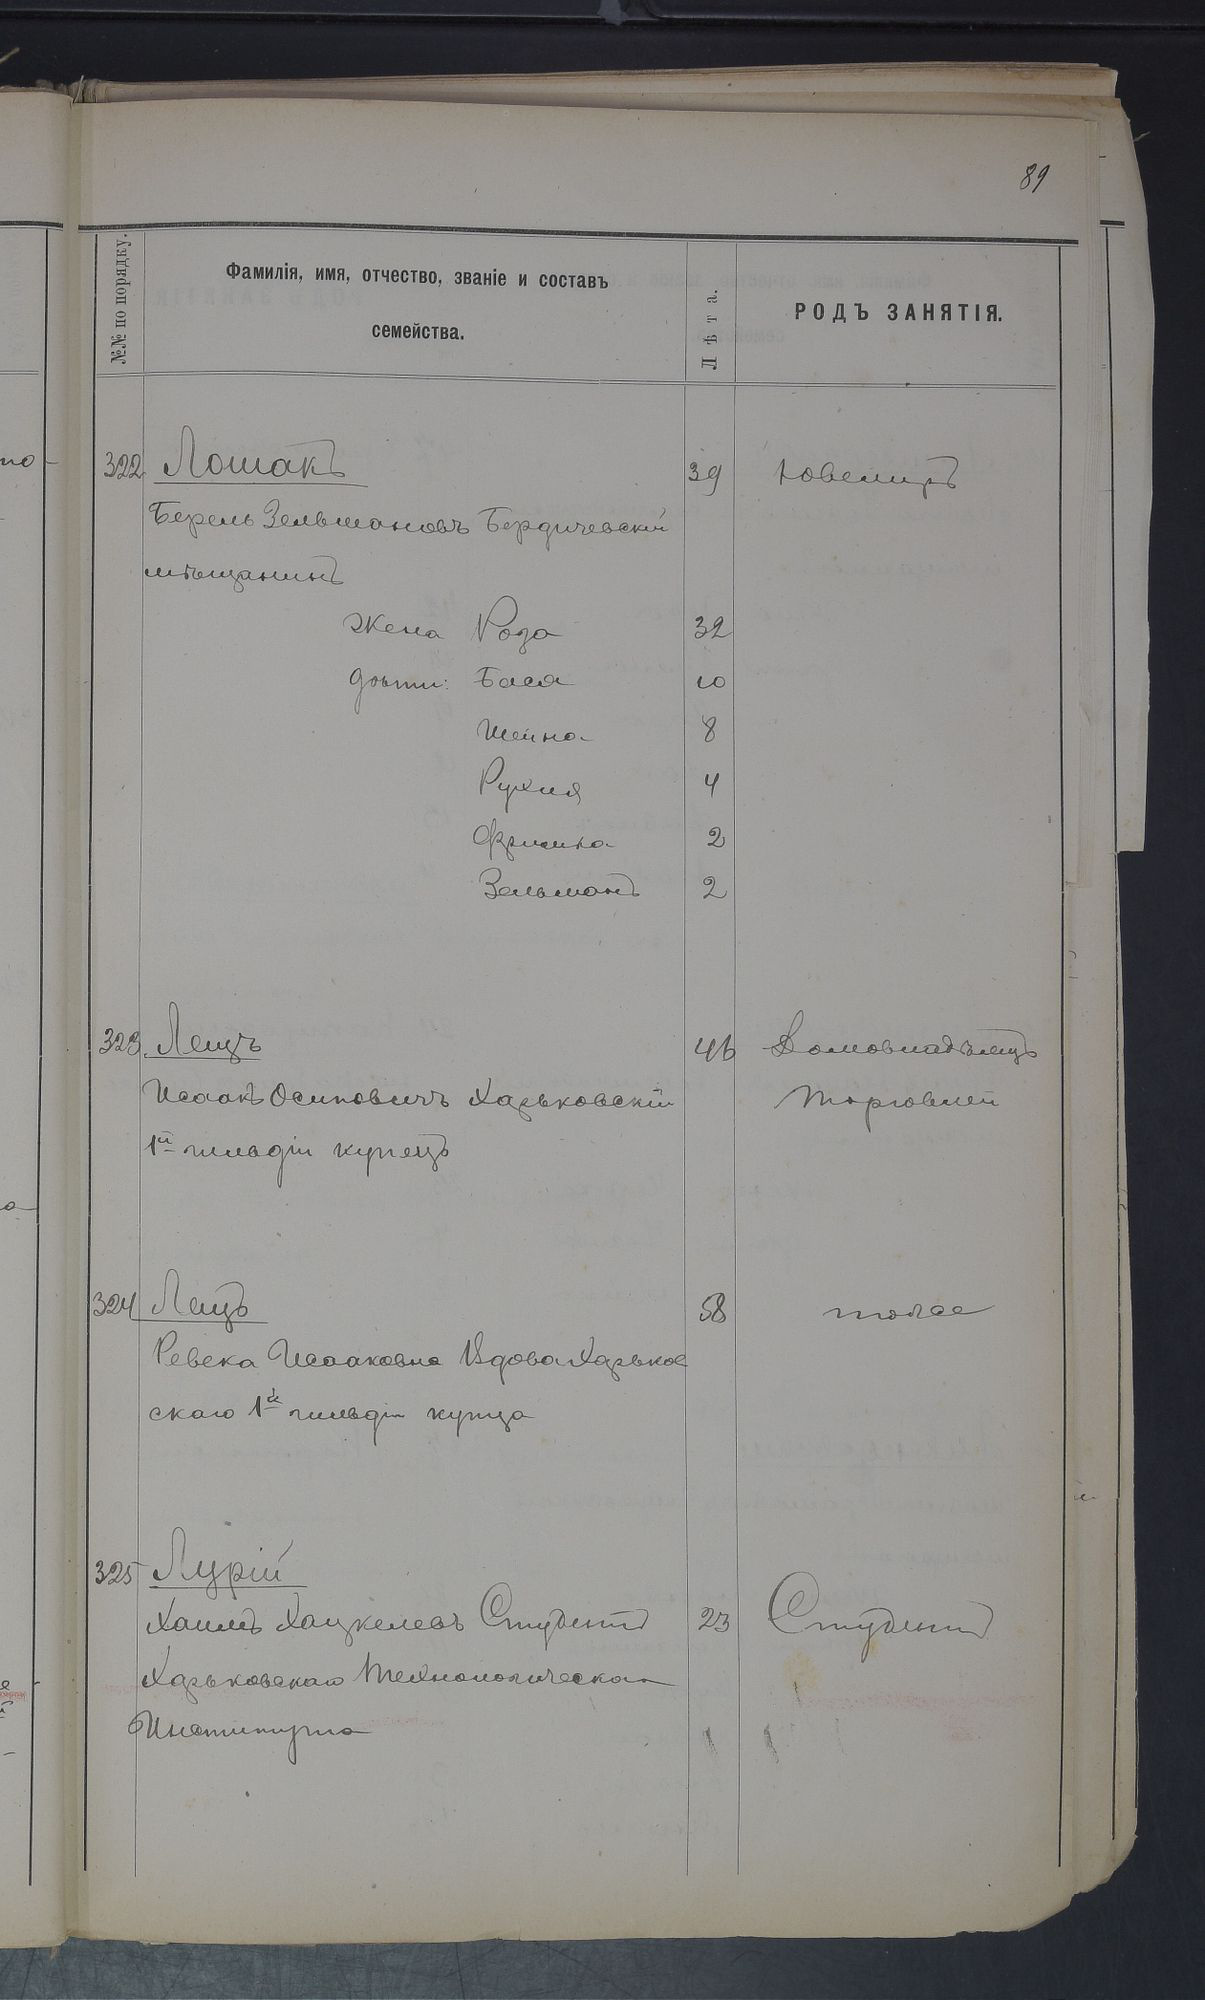 89
№№ по порядку.
Фамилія, имя, отчество, званіе и составъ
семейства.
Лѣта.
РОДЪ ЗАНЯТІЯ.
322 Лошакъ 39 Ювелиръ
Берель Зельмановъ Бердичевскій
мѣщанинъ
Жена Роза 32
дѣти: Бася 10
Шейна 8
Рухля 4
2
Зельманъ 2
323 Лещъ 46 Домовладѣлецъ
Исаакъ Осиповичъ Харьковскій Торговлей
1й гильдіи купецъ
324 Лещъ 58 тоже
Ревека Исааковна Вдова Харьков
скаго 1й гильдіи купца
325 Лурій
Хаимъ Хацкелевъ Студентъ 23 Студентъ
Харьковскаго Технологическаго
Института